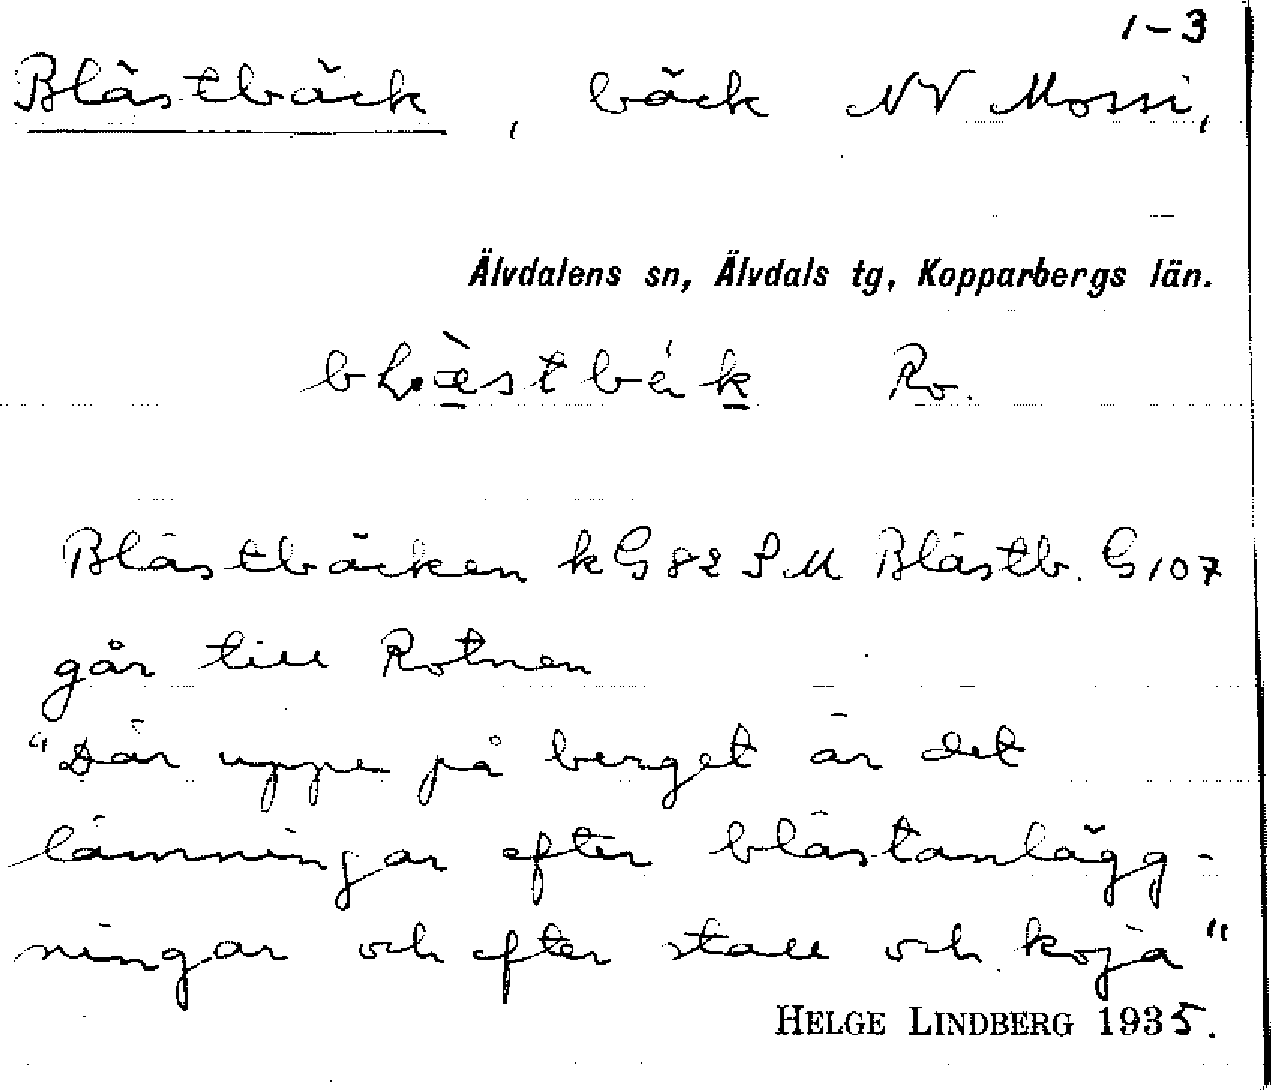 1-3
Blästbäck, bäck NV Mossi,
Älvdalens sn, Älvdals tg, Kopparbergs län.
Ro.
Blästbäcken kG82 SM Blästb. G107
går till Rotnen
"Där uppe på berget är det
lämningar efter blästanlägg-
ningar och efter stall och koja"
HELGE LINDBERG 1935.